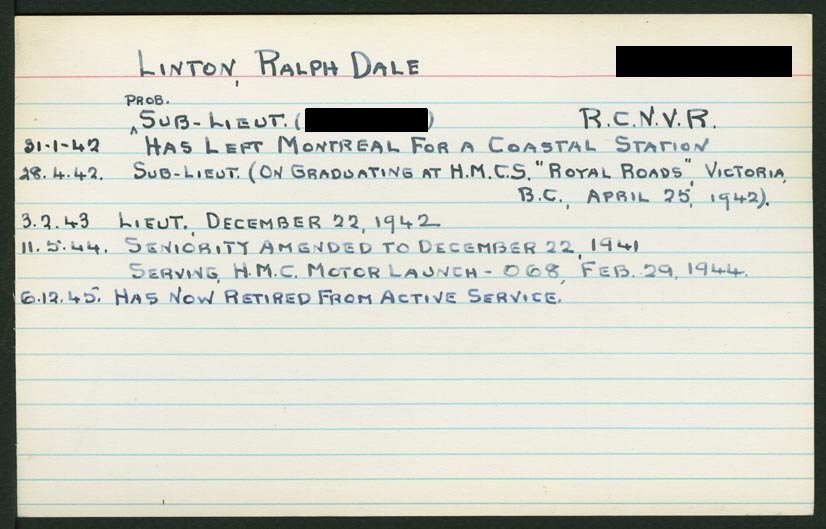 LINTON, RALPH DALE
PROB.
SUB-LIEUT. ( ) R.C.N.V.R.
31-1-42 HAS LEFT MONTREAL FOR A COASTAL STATION
28.4.42. SUB-LIEUT. (ON GRADUATING AT H.M.C.S. "ROYAL ROADS", VICTORIA,
B.C., APRIL 25, 1942).
3.2.43 LIEUT., DECEMBER 22, 1942
11.5.44. SENIORITY AMENDED TO DECEMBER 22, 1941
SERVING, H.M.C. MOTOR LAUNCH - 068, FEB. 29, 1944.
6.12.45. HAS NOW RETIRED FROM ACTIVE SERVICE.